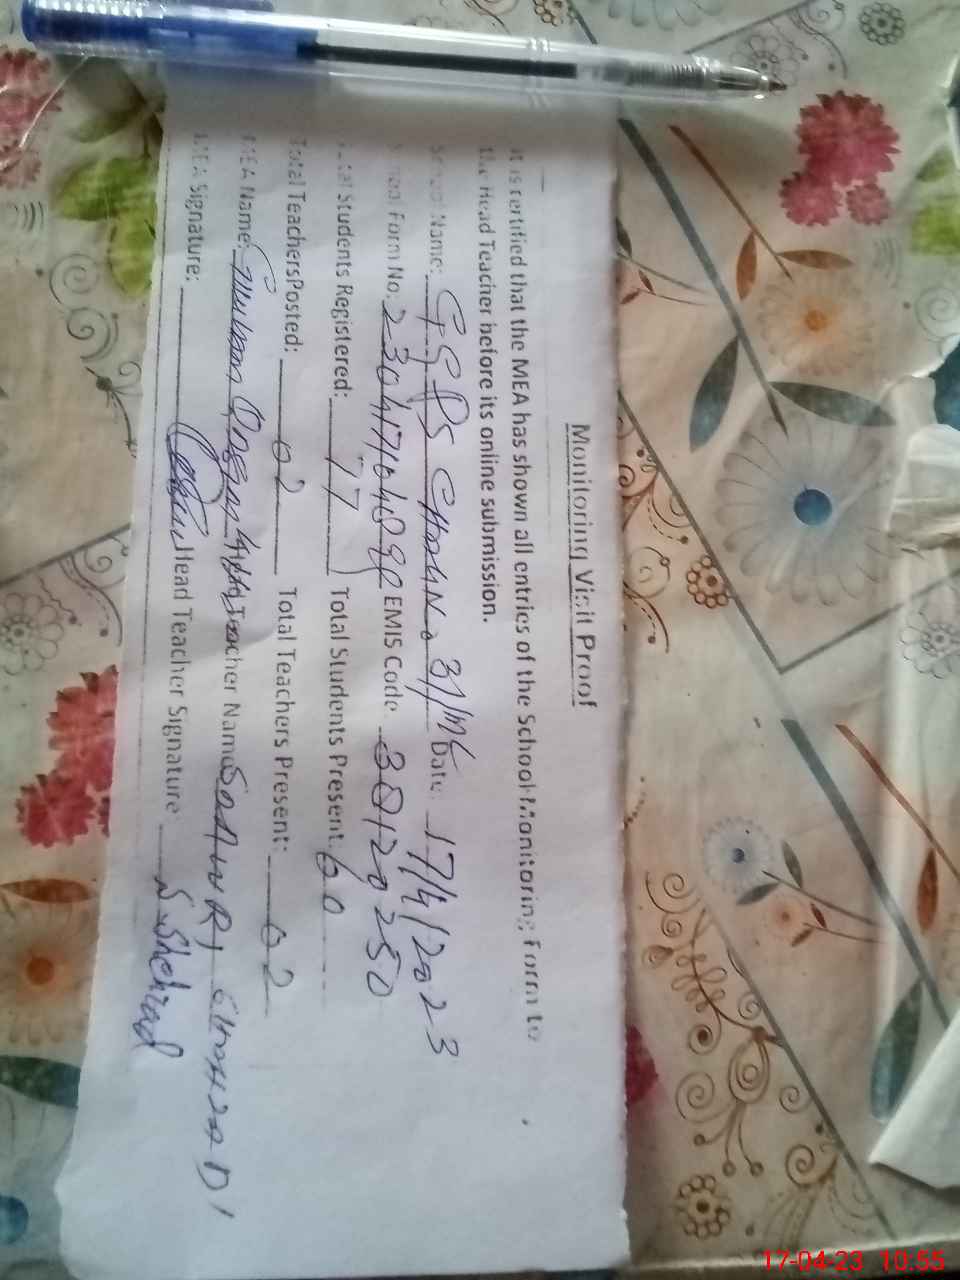 Monitoring Visit Proof
It is certified that the MEA has shown all entries of the School Monitoring Form to
the Head Teacher before its online submission.
School Name: GGPS CHAK No 31/ML Date: 17/4/2023
Form No: EMIS Code 30120250
Total Students Registered: 77 Total Students Present: 60
Total Teachers Posted: 02 Total Teachers Present: 02
MEA Name: Teacher Name
MEA Signature: Head Teacher Signature S.Shehzad
17-04-23 10:55